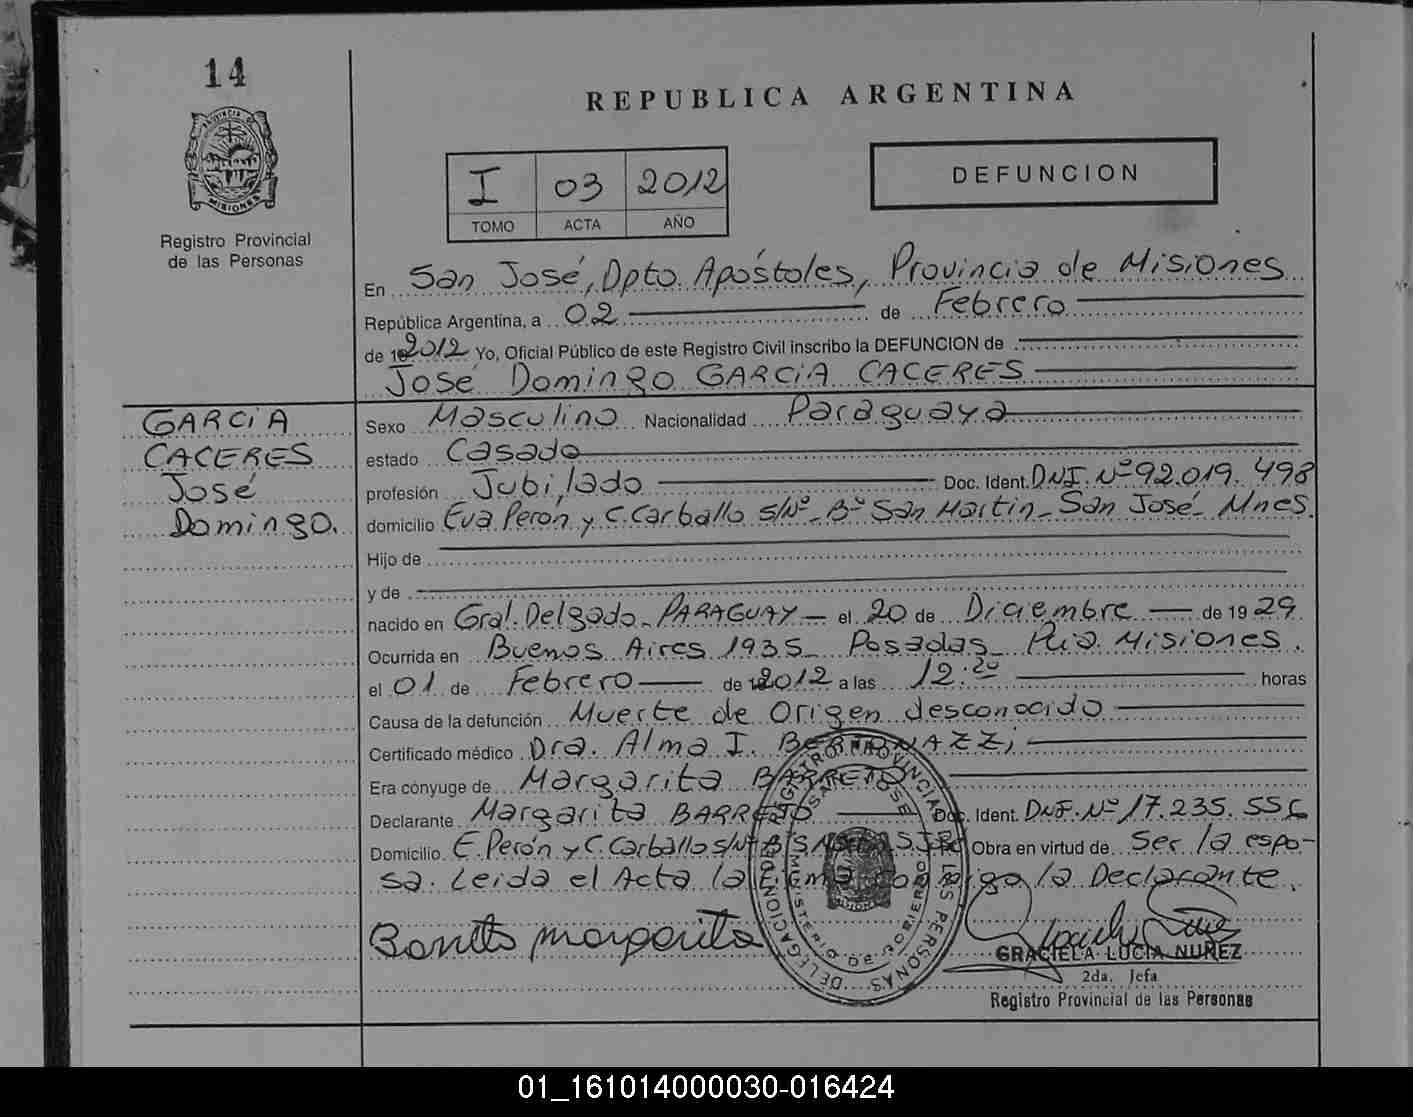 14
REPUBLICA ARGENTINA
PROVINCIA DE
MISIONES
Registro Provincial
de las Personas
I 03 2012
TOMO ACTA AÑO
DEFUNCION
En San José, Dpto. Apóstoles, Provincia de Misiones
República Argentina, a 02 de Febrero
de 2012 Yo, Oficial Público de este Registro Civil inscribo la DEFUNCION de
José Domingo GARCIA CACERES
GARCIA
CACERES
José
Domingo.
Sexo Masculino Nacionalidad Paraguaya
estado Casado
profesión Jubilado Doc. Ident. DNI. Nº 92.019.498
domicilio Eva Perón y C. Carballo s/Nº - Bº San Martin - San José - Mnes.
Hijo de
y de
nacido en Gral. Delgado - PARAGUAY - el 20 de Diciembre de 1929
Ocurrida en Buenos Aires 1935 - Posadas - Pcia. Misiones.
el 01 de Febrero de 2012 a las 12:20 horas
Causa de la defunción Muerte de Origen desconocido
Certificado médico Dra. Alma I.
Era cónyuge de Margarita BARRETO
Declarante Margarita BARRETO Doc. Ident. DNI. Nº 17.235.556
Domicilio E. Perón y C. Carballo s/Nº Obra en virtud de Ser la espo-
sa. Leida el Acta la firma conmigo la Declarante.
margarita
DELEGACION DE REGISTRO PROVINCIAL DE LAS PERSONAS
SAN JOSE
MINISTERIO DE GOBIERNO
GRACIELA LUCIA NUÑEZ
2da. Jefa
Registro Provincial de las Personas
01_161014000030-016424